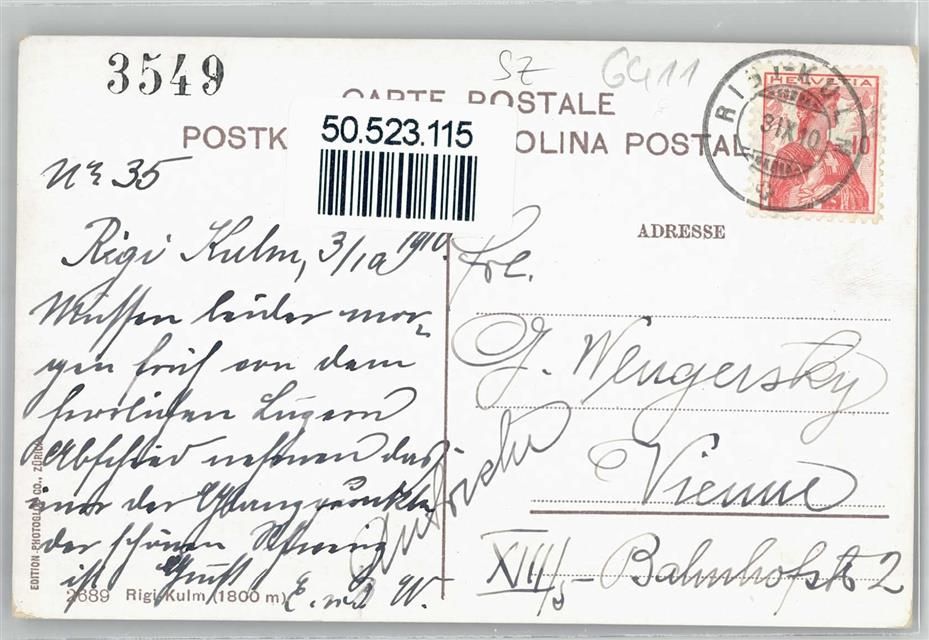 3549
SZ 6411
CARTE POSTALE
POSTK OLINA POSTAL
50.523.115
HELVETIA
10
RIGI-KULM
3 IX 10
Nr 35
ADRESSE
Rigi Kulm, 3/ 1910.
Müssen leider mor-
gen früh von dem
herrlichen Luzern
Abschied nehmen das
einer der Glanzpunkte
der schönen Schweiz
ist Gruß
E. W.
Frl.
G. Wengersky
Vienne
Autriche
XIII/5 Bahnhofstr 2
EDITION PHOTOGLOB CO., ZÜRICH
2689 Rigi-Kulm (1800 m)